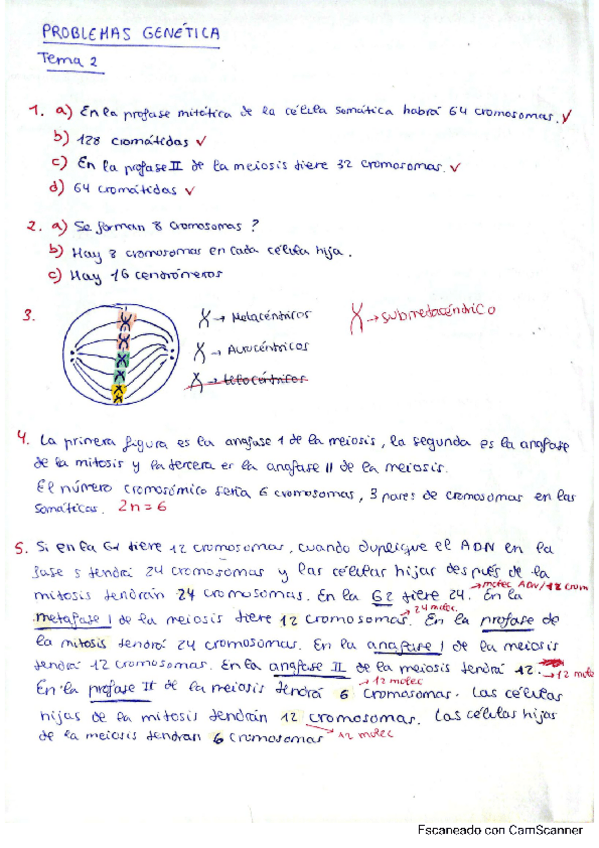 PROBLEMAS GENÉTICA
Tema 2
1. a) En la profase mitótica de la célula somática habrá 64 cromosomas. ✓
b) 128 cromátidas ✓
c) En la profase II de la meiosis tiene 32 cromosomas. ✓
d) 64 cromátidas ✓
2. a) Se forman 8 cromosomas ?
b) Hay 8 cromosomas en cada célula hija.
c) Hay 16 centrómeros
3.
X → Metacéntricos
X → submetacéntrico
X → Acrocéntricos
X → telocéntricos
4. La primera figura es la anafase 1 de la meiosis, la segunda es la anafase
de la mitosis y la tercera es la anafase II de la meiosis.
El número cromosómico sería 6 cromosomas, 3 pares de cromosomas en las
somáticas. 2n = 6
5. Si en la G1 tiene 12 cromosomas, cuando duplique el ADN en la
fase S tendrá 24 cromosomas y las células hijas después de la
mitosis tendrán 24 cromosomas. En la G2 tiene 24. En la
molec ADN/12 crom
metafase I de la meiosis tiene 12 cromosomas. En la profase de
→ 24 molec.
la mitosis tendrá 24 cromosomas. En la anafase I de la meiosis
tendrá 12 cromosomas. En la anafase II de la meiosis tendrá 12.
→ 12 molec
En la profase II de la meiosis tendrá 6 cromosomas. Las células
→ 12 molec
hijas de la mitosis tendrán 12 cromosomas. Las células hijas
de la meiosis tendran 6 cromosomas
→ 12 molec
Escaneado con CamScanner